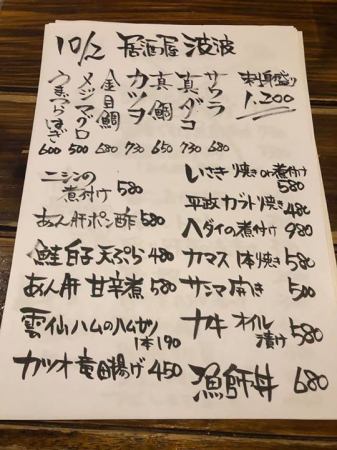 10/2 居酒屋 波波
刺身盛り
1,200
サワラ 680
真ダコ 730
真鯛 650
カツオ 730
金目鯛 680
メジマグロ 500
うまづらはぎ 600
ニシンの
煮付け 580
あん肝ポン酢 580
鮭白子天ぷら 480
あん肝 甘辛煮 580
雲仙ハムのハムカツ
1本190
カツオ竜田揚げ 450
いさき 焼き or 煮付け
580
平政カブト焼き 480
ヘダイの煮付け 980
カマス 一本焼き 580
サンマ 開き 500
カキ オイル
漬け 580
漁師丼 680